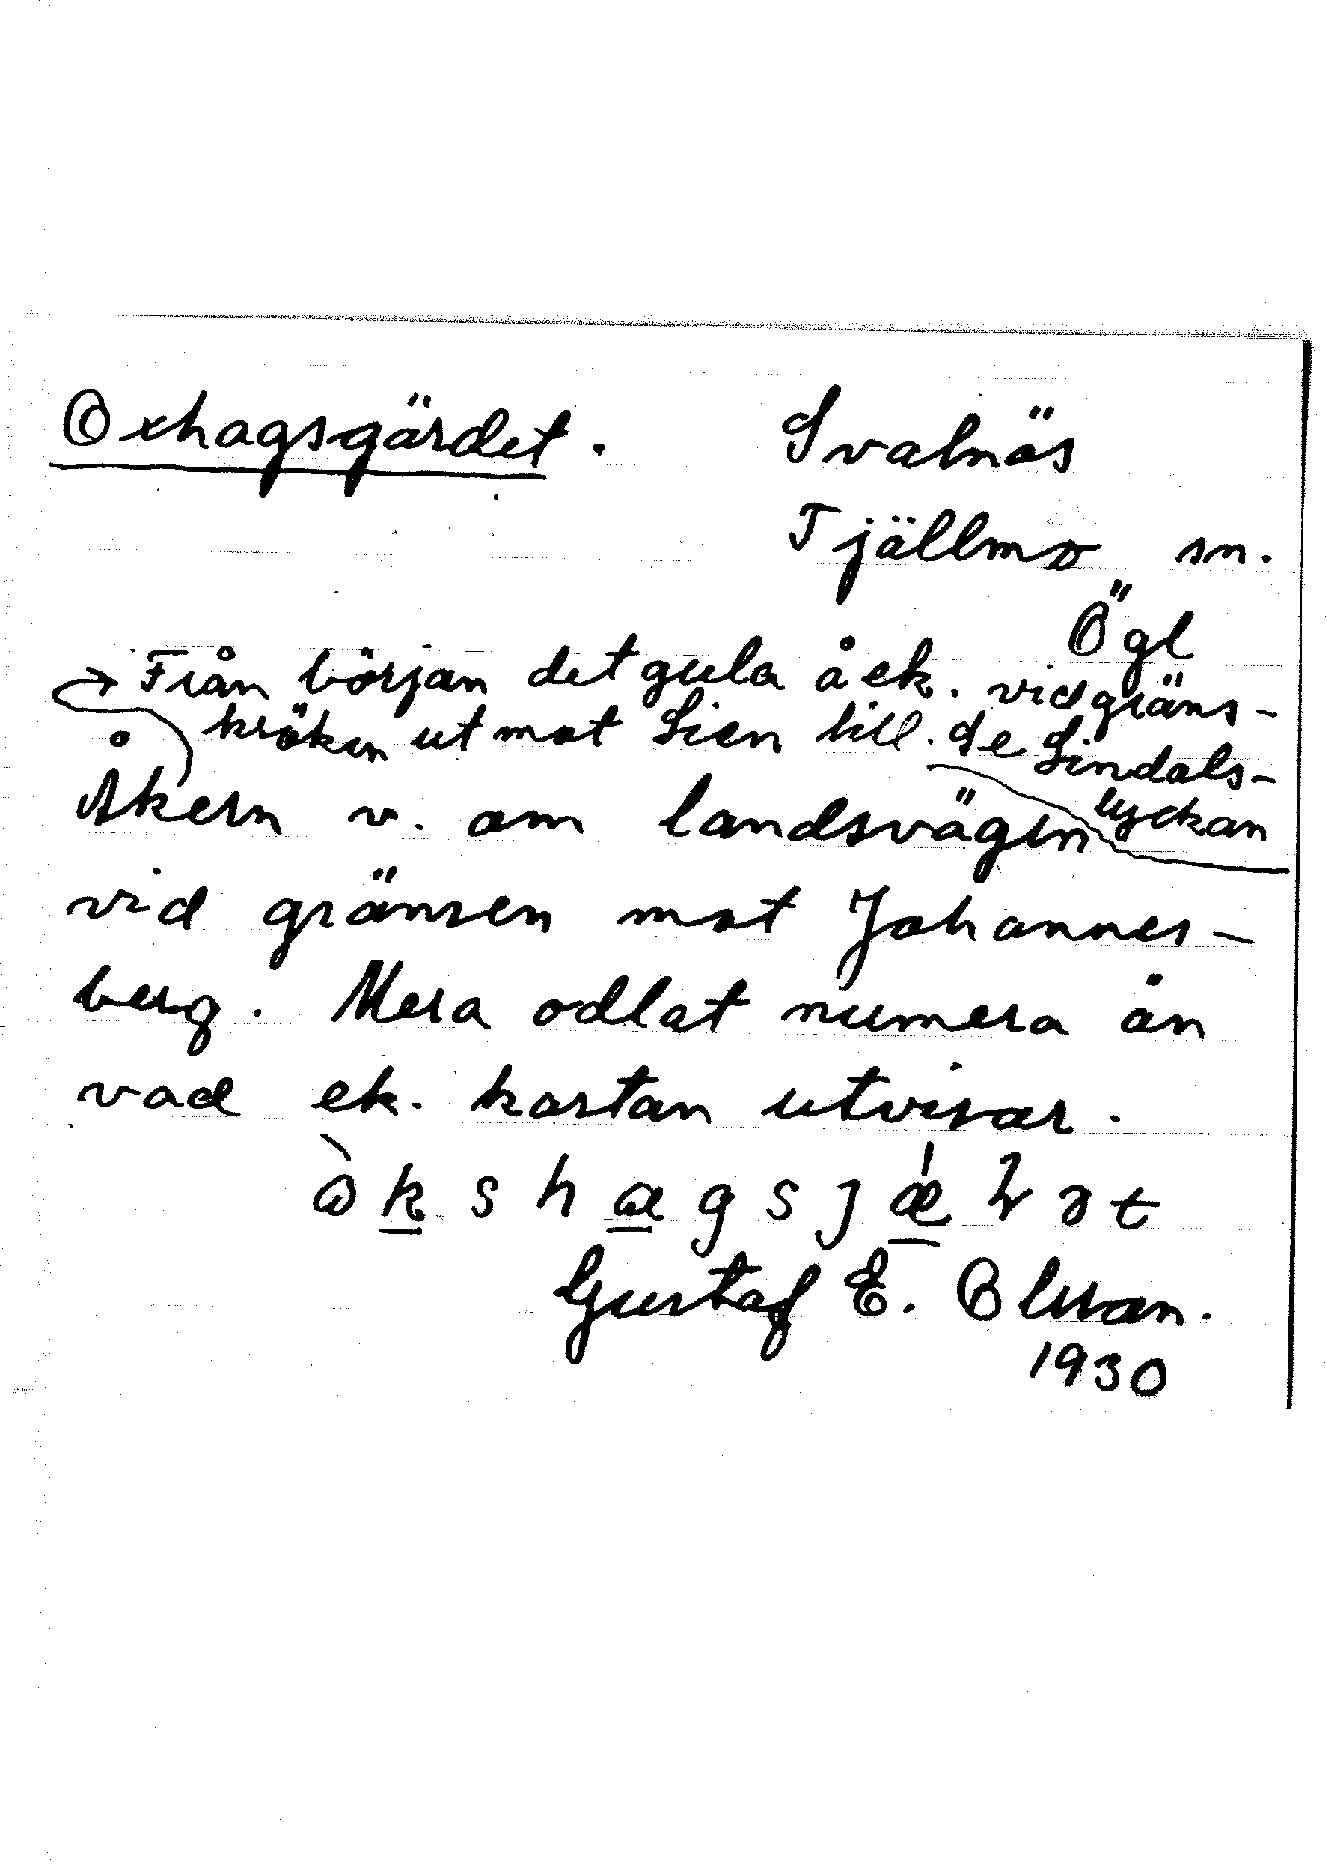 Oxhagsgärdet. Svalnäs
Tjällmo sn.
Ögl
Från början det gula å ek. vid gräns-
kröken ut mot Lien till. Se Lindals-
lyckan
Åkern v. om landsvägen
vid gränsen mot Johannes-
berg. Mera odlat numera än
vad ek. kartan utvisar.
Gustaf E. Olsson.
1930